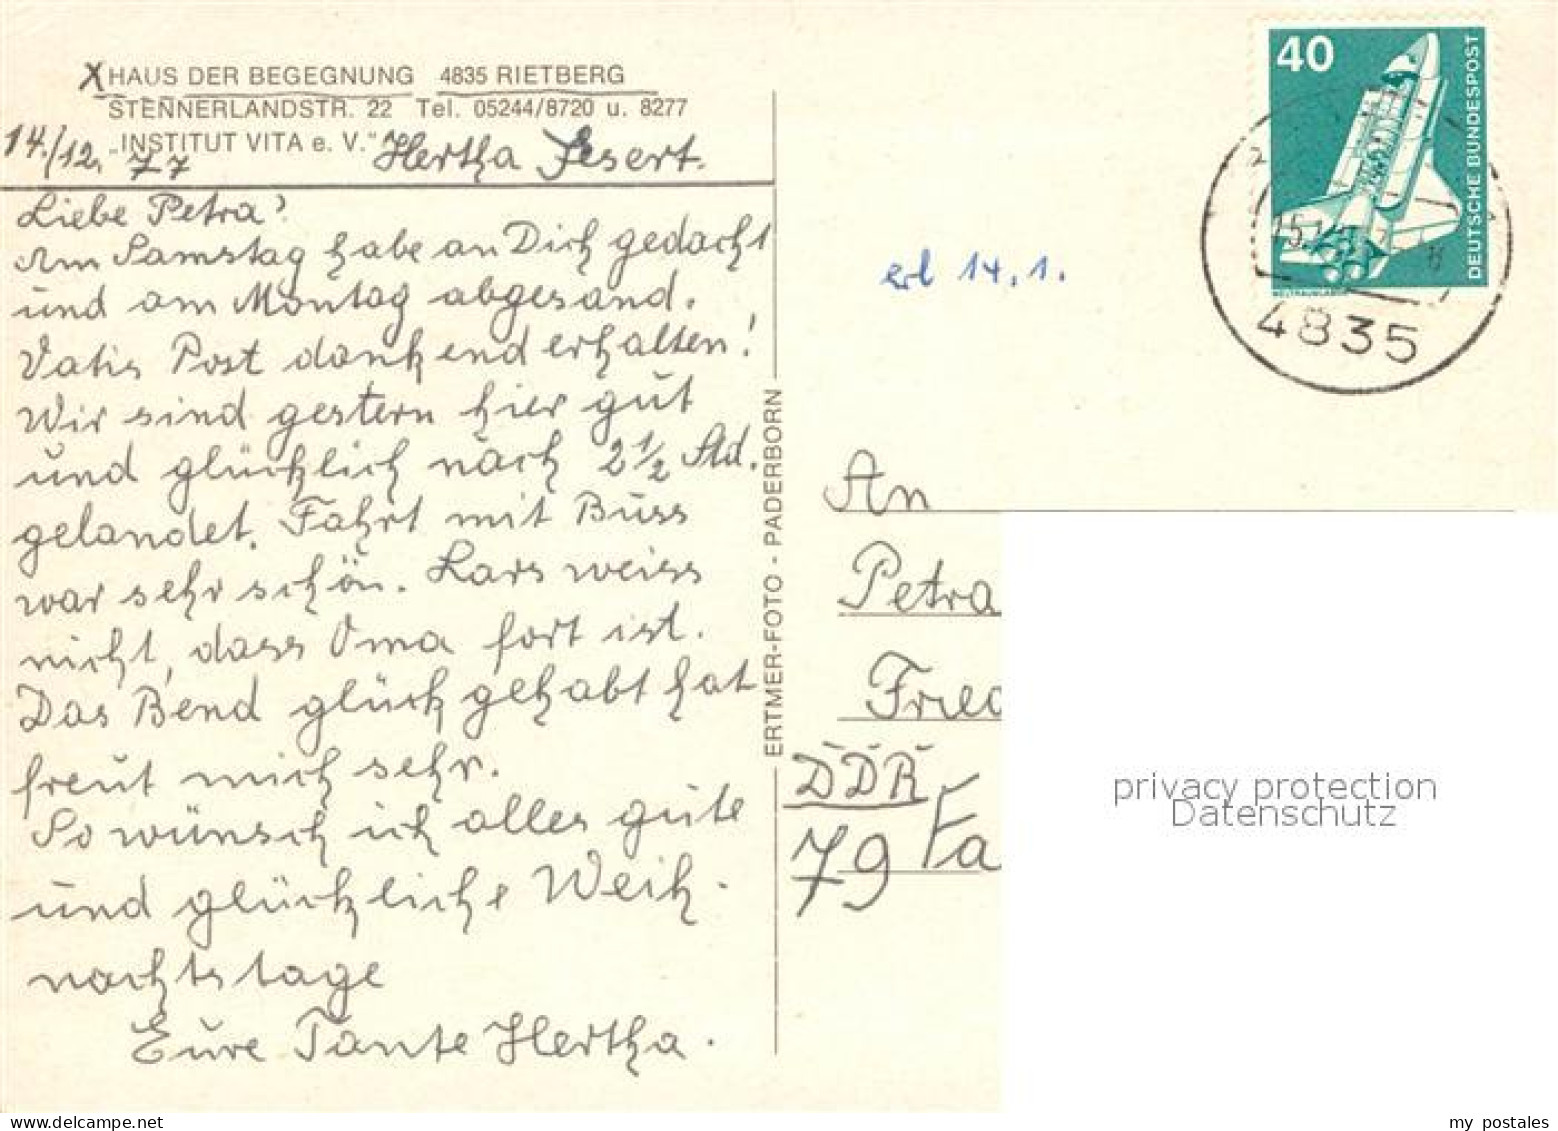 XHAUS DER BEGEGNUNG 4835 RIETBERG
STENNERLANDSTR. 22 Tel. 05244/8720 u. 8277
„INSTITUT VITA e. V.“ Hertha Jesert.
14./12. 77
Liebe Petra!
Am Samstag habe an Dich gedacht
und am Montag abgesand.
Vatis Post dankend erhalten!
Wir sind gestern hier gut
und glücklich nach 2 1/2 Std.
gelandet. Fahrt mit Buss
war sehr schön. Lars weiss
nicht, dass Oma fort ist.
Das Bend glück gehabt hat
freut mich sehr.
So wünsch ich alles gute
und glückliche Weih-
nachtstage
Eure Tante Hertha.
ERTMER-FOTO - PADERBORN
40
DEUTSCHE BUNDESPOST
WELTRAUMLABOR
4835
erl 14.1.
An
Petra
Fried
DDR
79 Fa
privacy protection
Datenschutz
delcampe.net
my postales